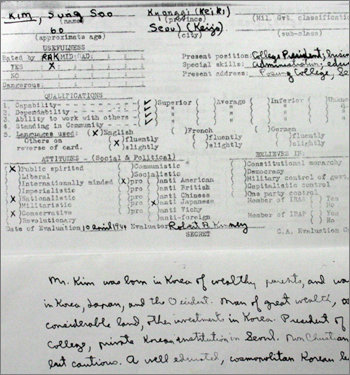 KIM, Sung Soo Kyonggi (Keiki) (Mil. Gvt. classification)
(name) (province) (sub-class)
60 Seoul (Keijo)
(approximate age) (city)
USEFULNESS
Rated by RAK MID: AD: Present position: College President,
YES X Special skills:
NO Present address: College,
Dangerous
QUALIFICATIONS
1. Capability Superior Average Inferior
2. Dependability
3. Ability to work with others
4. Standing in Community
5. LANGUAGES USED: English French German
Others on fluently fluently
reverse of card. slightly slightly
ATTITUDES - (Social & Political) BELIEVES IN:
X Public spirited Communistic Constitutional monarchy
Liberal Socialistic Democracy
Internationally minded X pro anti American Military control of gov
Imperialistic pro anti British Capitalistic control
X Nationalistic pro anti Chinese One party control
Militaristic pro X anti Japanese Member of IRAS Yes
X Conservative pro anti Vichy No
Revolutionary anti-foreign Member of IRAP Yes
No
Date of Evaluation 10 April 194 Evaluator Robert A. Kinney
SECRET C.A. Evaluation
Mr. Kim was born in Korea of wealthy parents, and
in Korea, Japan, and the Occident. Man of great wealth,
considerable land, other investments in Korea. President of
College, private Korean institution in Seoul. Non Christian
but cautious. A well educated, cosmopolitan Korean